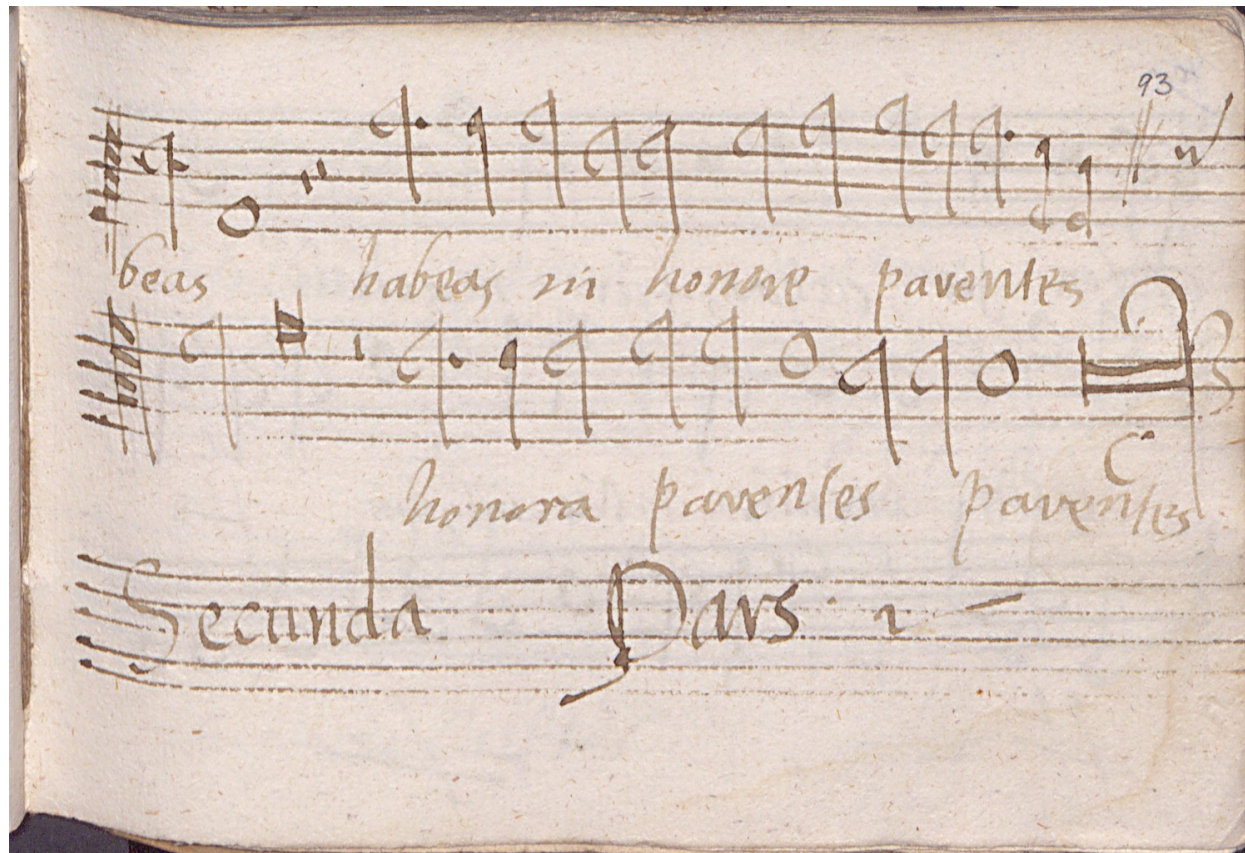 93
beas habeas in honore parentes
honora parentes parentes
Secunda Pars 2